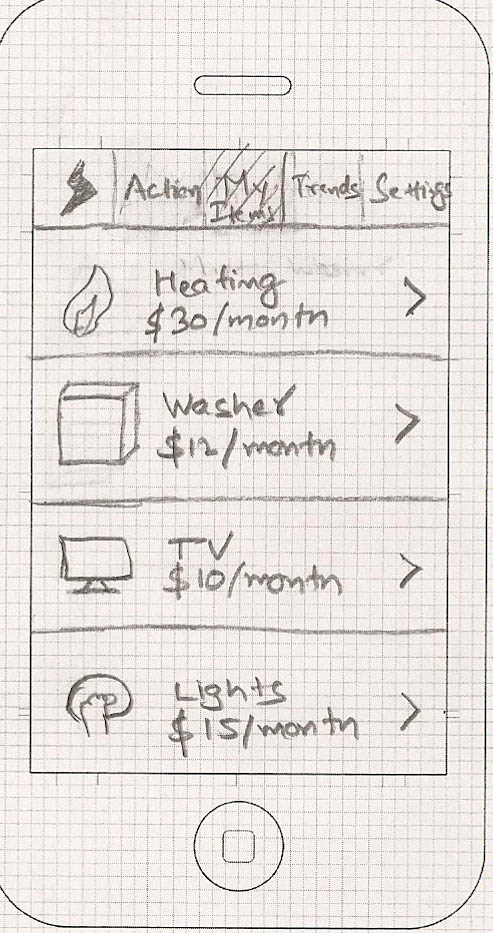 Action
My
Items
Trends
Settings
Heating
$30/month
Washer
$12/month
TV
$10/month
Lights
$15/month